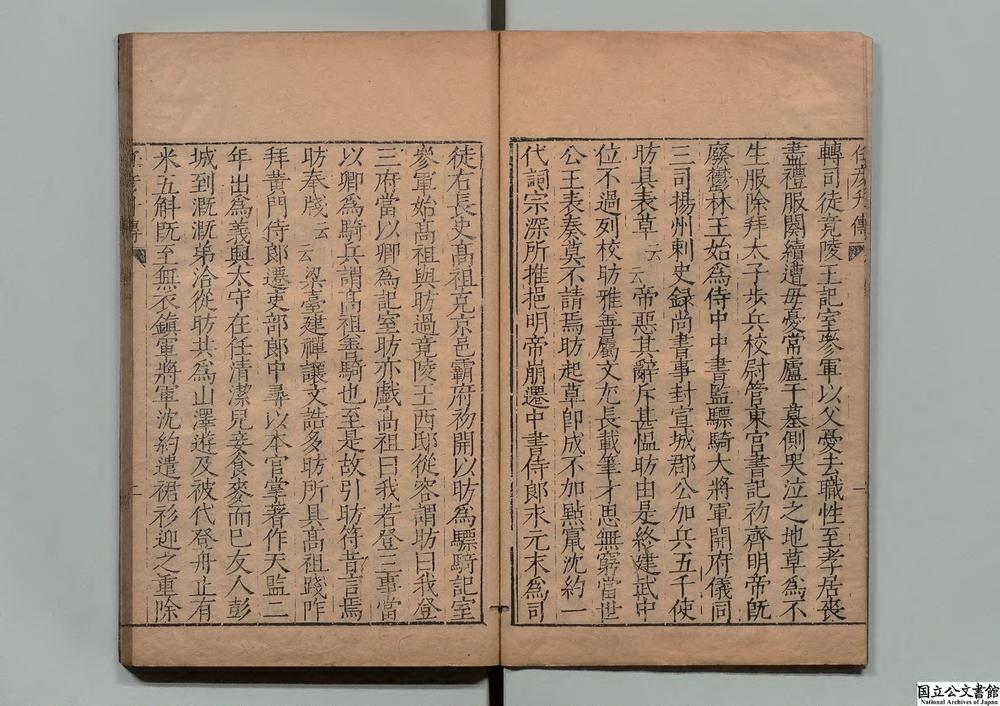 任彦升傳
轉司徒竟陵王記室參軍以父憂去職性至孝居喪
盡禮服闋續遭毋憂常廬于墓側哭泣之地草爲不
生服除拜太子歩兵校尉管東宮書記初齊明帝旣
廢鬱林王始爲侍中中書監驃騎大將軍開府儀同
三司揚州刺史録尚書事封宣城郡公加兵五千使
昉具表草云云帝惡其辭斥甚慍昉由是終建武中
位不過列校昉雅善屬文尤長載筆才思無窮當世
公王表奏莫不請焉昉起草即成不加點竄沈約一
代詞宗深所推挹明帝崩遷中書侍郎永元末爲司
徒右長史髙祖克京邑霸府初開以昉爲驃騎記室
參軍始髙祖與昉過竟陵王西邸從容謂昉曰我登
三府當以卿爲記室昉亦戲髙祖曰我若登三事當
以卿爲騎兵謂髙祖善騎也至是故引昉符昔言焉
昉奉牋云云梁臺建禪讓文誥多昉所具髙祖踐阼
拜黄門侍郎遷吏部郎中尋以本官掌著作天監二
年出爲義興太守在任清潔兒妾食麥而已友人彭
城到溉溉弟洽從昉共爲山澤遊及被代登舟止有
米五斛旣至無衣鎮軍將軍沈約遣裙衫迎之重除
國立公文書館
National Archives of Japan